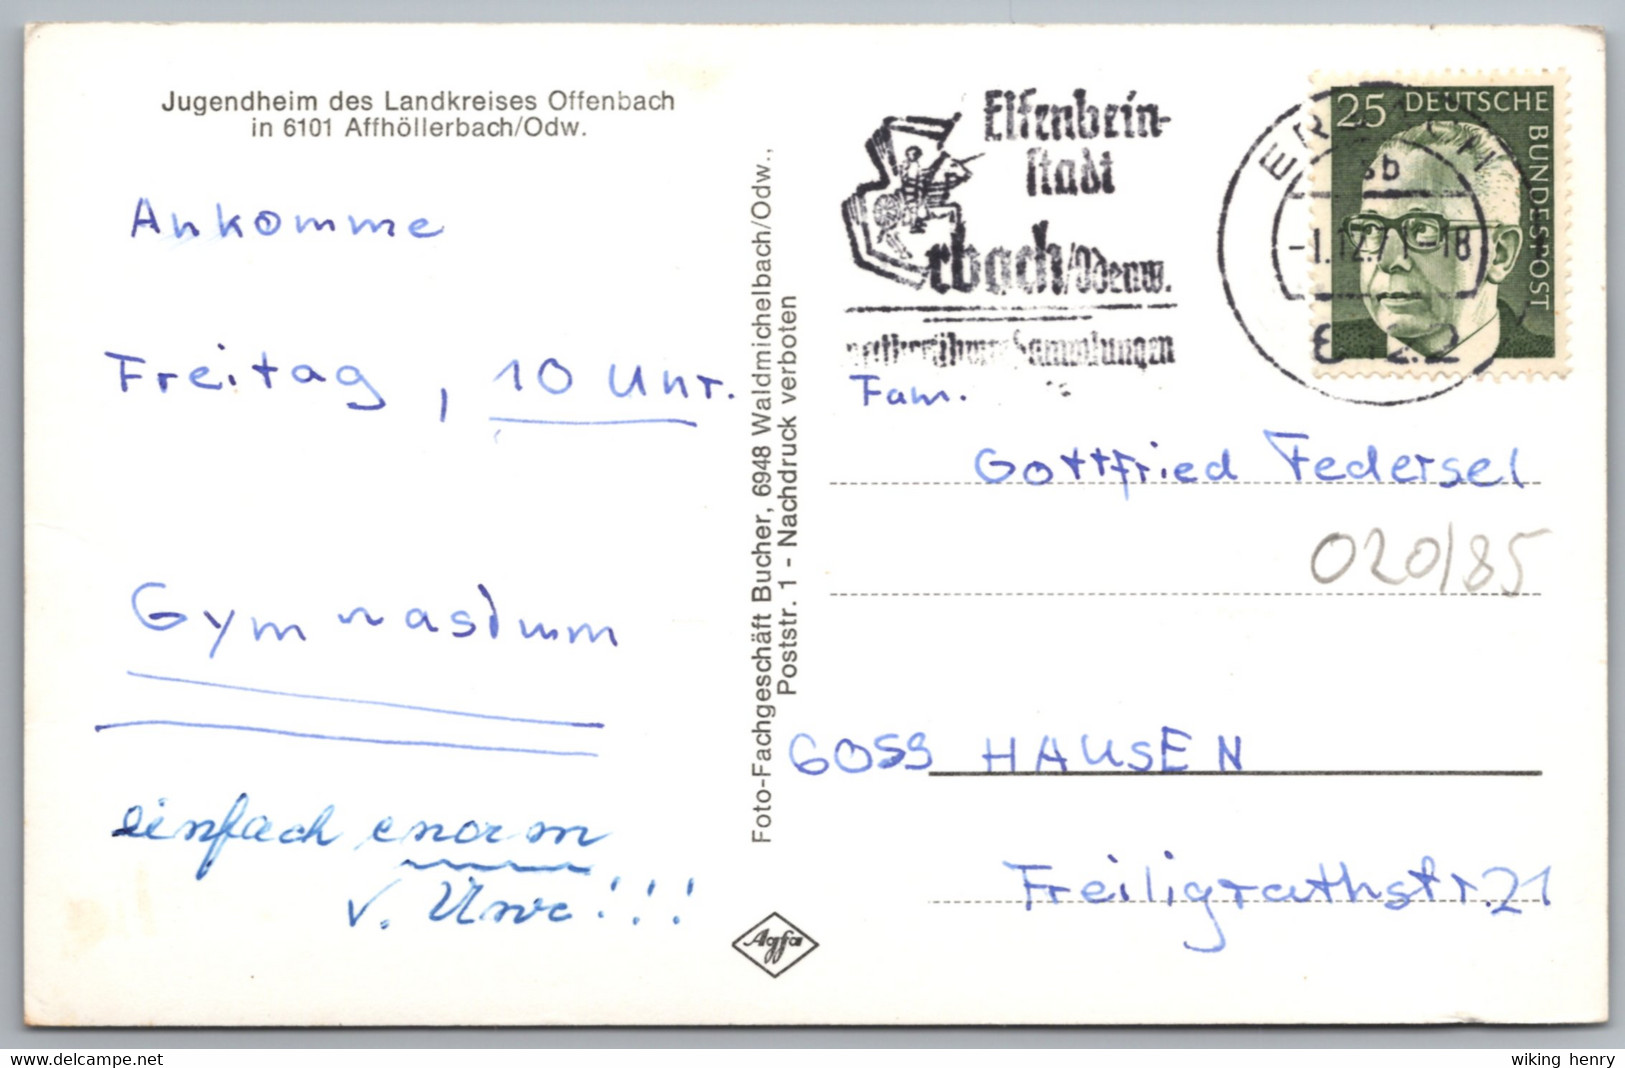 Jugendheim des Landkreises Offenbach
in 6101 Affhöllerbach/Odw.
Ankomme
Freitag, 10 Uhr.
Gymnasium
einfach enorm
v. Uwe!!!
Foto-Fachgeschäft Bucher, 6948 Waldmichelbach/Odw.,
Poststr. 1 - Nachdruck verboten
Agfa
Elfenbein-
stadt
Erbach/Odenw.
Sammlungen
ERBACH
sb
-1.12.71-18
25 DEUTSCHE
BUNDESPOST
Fam.
Gottfried Federsel
020/85
6055 HAUSEN
Freiligrathstr. 21
delcampe.net
wiking henry